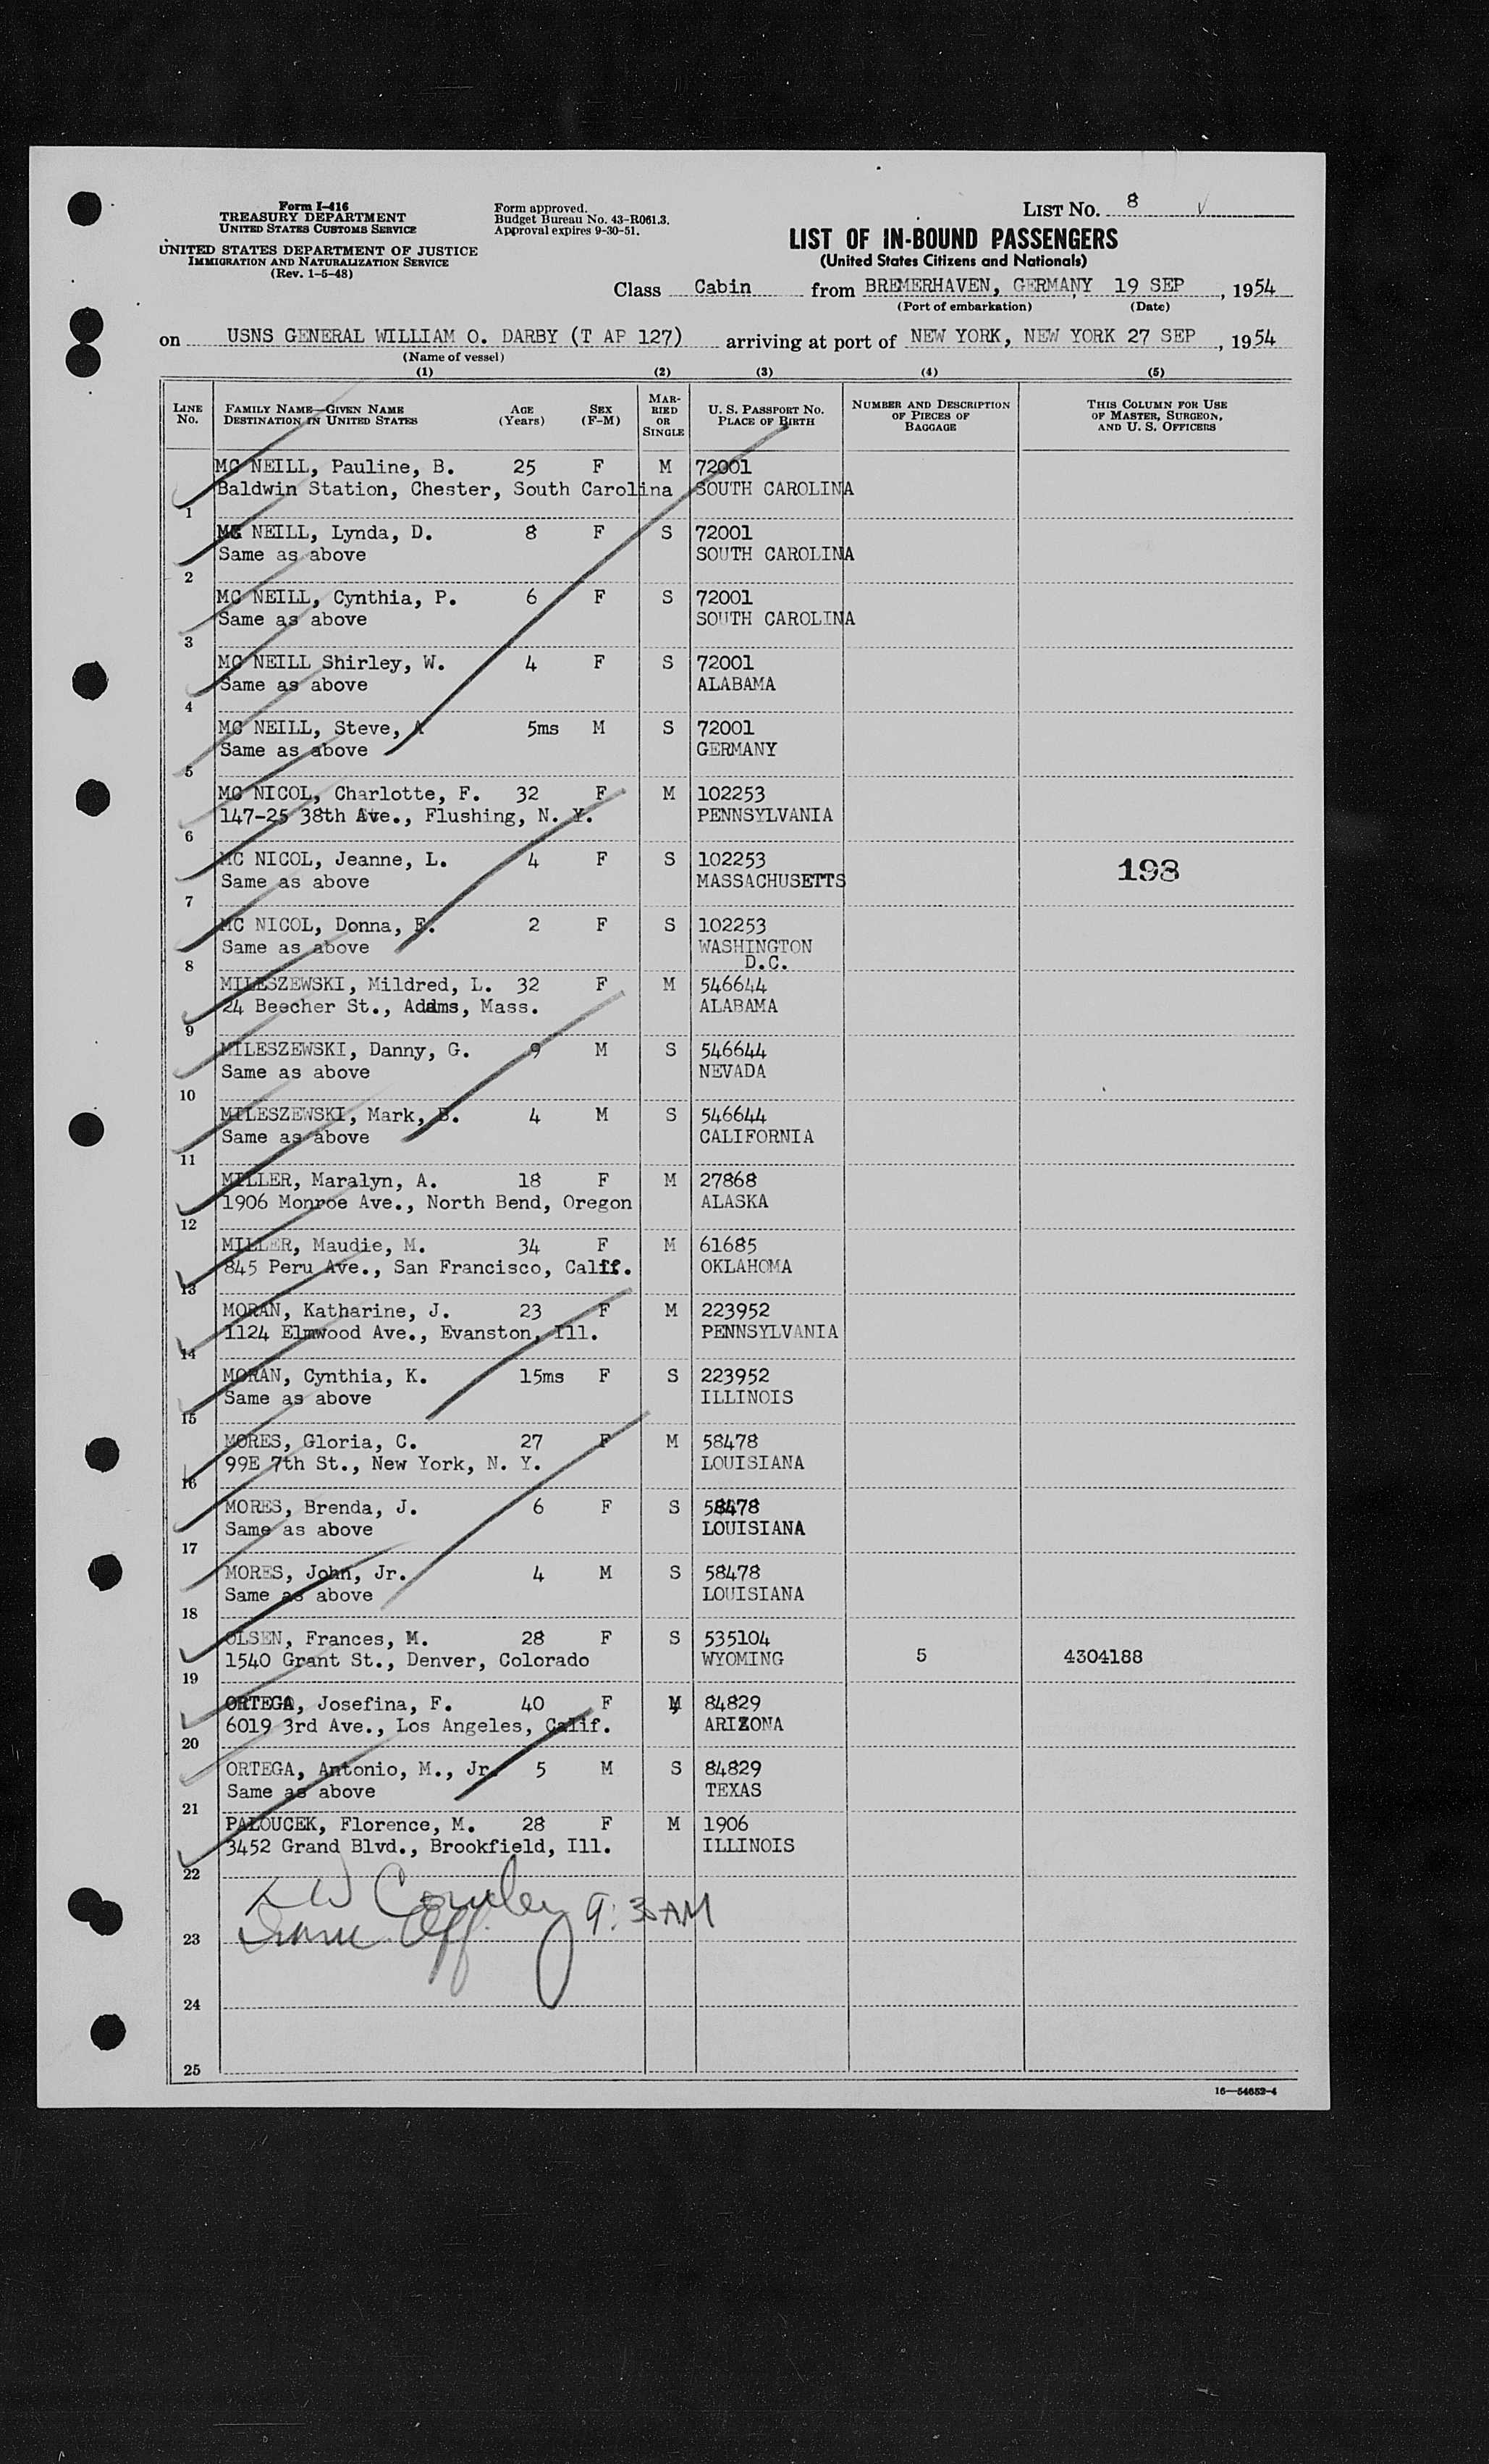 Form I-416
TREASURY DEPARTMENT
UNITED STATES CUSTOMS SERVICE
UNITED STATES DEPARTMENT OF JUSTICE
IMMIGRATION AND NATURALIZATION SERVICE
(Rev. 1-5-48)
Form approved.
Budget Bureau No. 43-R061.3.
Approval expires 9-30-51.
LIST NO. 8
LIST OF IN-BOUND PASSENGERS
(United States Citizens and Nationals)
Class Cabin from BREMERHAVEN, GERMANY 19 SEP, 1954
(Port of embarkation) (Date)
on USNS GENERAL WILLIAM O. DARBY (T AP 127) arriving at port of NEW YORK, NEW YORK 27 SEP, 1954
(Name of vessel)
(1) (2) (3) (4) (5)
LINE NO. FAMILY NAME—GIVEN NAME DESTINATION IN UNITED STATES AGE (Years) SEX (F-M) MARRIED OR SINGLE U. S. PASSPORT NO. PLACE OF BIRTH NUMBER AND DESCRIPTION OF PIECES OF BAGGAGE THIS COLUMN FOR USE OF MASTER, SURGEON, AND U. S. OFFICERS
MC NEILL, Pauline, B. 25 F M 72001
Baldwin Station, Chester, South Carolina SOUTH CAROLINA
1
MC NEILL, Lynda, D. 8 F S 72001
Same as above SOUTH CAROLINA
2
MC NEILL, Cynthia, P. 6 F S 72001
Same as above SOUTH CAROLINA
3
MC NEILL Shirley, W. 4 F S 72001
Same as above ALABAMA
4
MC NEILL, Steve, A 5ms M S 72001
Same as above GERMANY
5
MC NICOL, Charlotte, F. 32 F M 102253
147-25 38th Ave., Flushing, N. Y. PENNSYLVANIA
6
MC NICOL, Jeanne, L. 4 F S 102253 198
Same as above MASSACHUSETTS
7
MC NICOL, Donna, E. 2 F S 102253
Same as above WASHINGTON
D.C.
8
MILESZEWSKI, Mildred, L. 32 F M 546644
24 Beecher St., Adams, Mass. ALABAMA
9
MILESZEWSKI, Danny, G. 9 M S 546644
Same as above NEVADA
10
MILESZEWSKI, Mark, B. 4 M S 546644
Same as above CALIFORNIA
11
MILLER, Maralyn, A. 18 F M 27868
1906 Monroe Ave., North Bend, Oregon ALASKA
12
MILLER, Maudie, M. 34 F M 61685
845 Peru Ave., San Francisco, Calif. OKLAHOMA
13
MORAN, Katharine, J. 23 F M 223952
1124 Elmwood Ave., Evanston, Ill. PENNSYLVANIA
14
MORAN, Cynthia, K. 15ms F S 223952
Same as above ILLINOIS
15
MORES, Gloria, C. 27 F M 58478
99E 7th St., New York, N. Y. LOUISIANA
16
MORES, Brenda, J. 6 F S 58478
Same as above LOUISIANA
17
MORES, John, Jr. 4 M S 58478
Same as above LOUISIANA
18
OLSEN, Frances, M. 28 F S 535104
1540 Grant St., Denver, Colorado WYOMING 5 4304188
19
ORTEGA, Josefina, F. 40 F M 84829
6019 3rd Ave., Los Angeles, Calif. ARIZONA
20
ORTEGA, Antonio, M., Jr. 5 M S 84829
Same as above TEXAS
21
PALOUCEK, Florence, M. 28 F M 1906
3452 Grand Blvd., Brookfield, Ill. ILLINOIS
22
9:30 AM
Imm Off.
23
24
25
16—54652-4